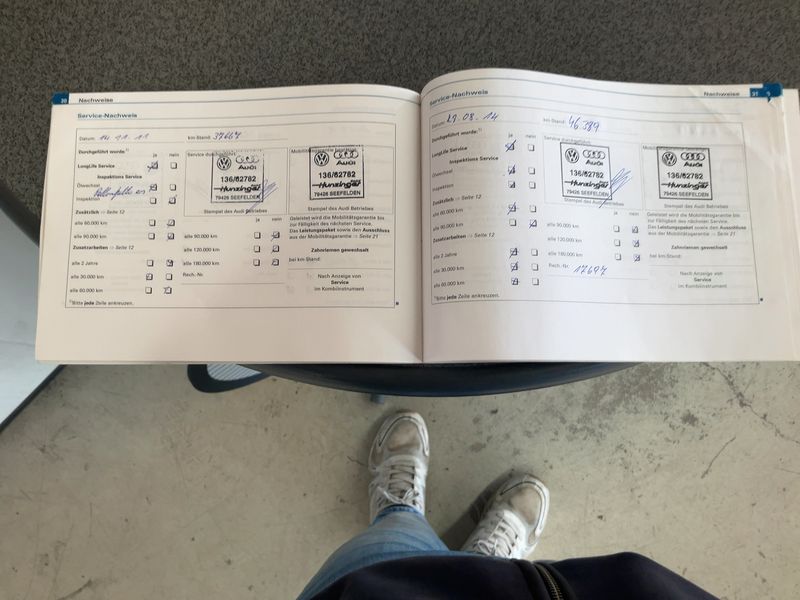 30 Nachweise
Service-Nachweis
Datum: 14.11.11 km-Stand: 37667
Durchgeführt wurde:¹⁾ ja nein
LongLife Service
Inspektions Service
Ölwechsel
Inspektion
Zusätzlich ⇨ Seite 12
alle 60.000 km
alle 90.000 km
Zusatzarbeiten ⇨ Seite 12
alle 2 Jahre
alle 30.000 km
alle 60.000 km
¹⁾Bitte jede Zeile ankreuzen.
Service durchgeführt:
Audi
136/62782
Hunzinger
79426 SEEFELDEN
Stempel des Audi Betriebes
ja nein
alle 90.000 km
alle 120.000 km
alle 180.000 km
Rech.-Nr.
Mobilitätsgarantie
Audi
136/62782
Hunzinger
79426 SEEFELDEN
Stempel des Audi Betriebes
Geleistet wird die Mobilitätsgarantie bis
zur Fälligkeit des nächsten Service.
Das Leistungspaket sowie den Ausschluss
aus der Mobilitätsgarantie ⇨ Seite 21
Zahnriemen gewechselt
bei km-Stand:
Nach Anzeige von
Service
im Kombiinstrument
Nachweise 31
Service-Nachweis
Datum: 27.08.14 km-Stand: 46389
Durchgeführt wurde:¹⁾ ja nein
LongLife Service
Inspektions Service
Ölwechsel
Inspektion
Zusätzlich ⇨ Seite 12
alle 60.000 km
alle 90.000 km
Zusatzarbeiten ⇨ Seite 12
alle 2 Jahre
alle 30.000 km
alle 60.000 km
¹⁾Bitte jede Zeile ankreuzen.
Service durchgeführt:
Audi
136/62782
Hunzinger
79426 SEEFELDEN
Stempel des Audi Betriebes
ja nein
alle 90.000 km
alle 120.000 km
alle 180.000 km
Rech.-Nr. 17697
Audi
136/62782
Hunzinger
79426 SEEFELDEN
Stempel des Audi Betriebes
Geleistet wird die Mobilitätsgarantie bis
zur Fälligkeit des nächsten Service.
Das Leistungspaket sowie den Ausschluss
aus der Mobilitätsgarantie ⇨ Seite 21
Zahnriemen gewechselt
bei km-Stand:
Nach Anzeige von
Service
im Kombiinstrument